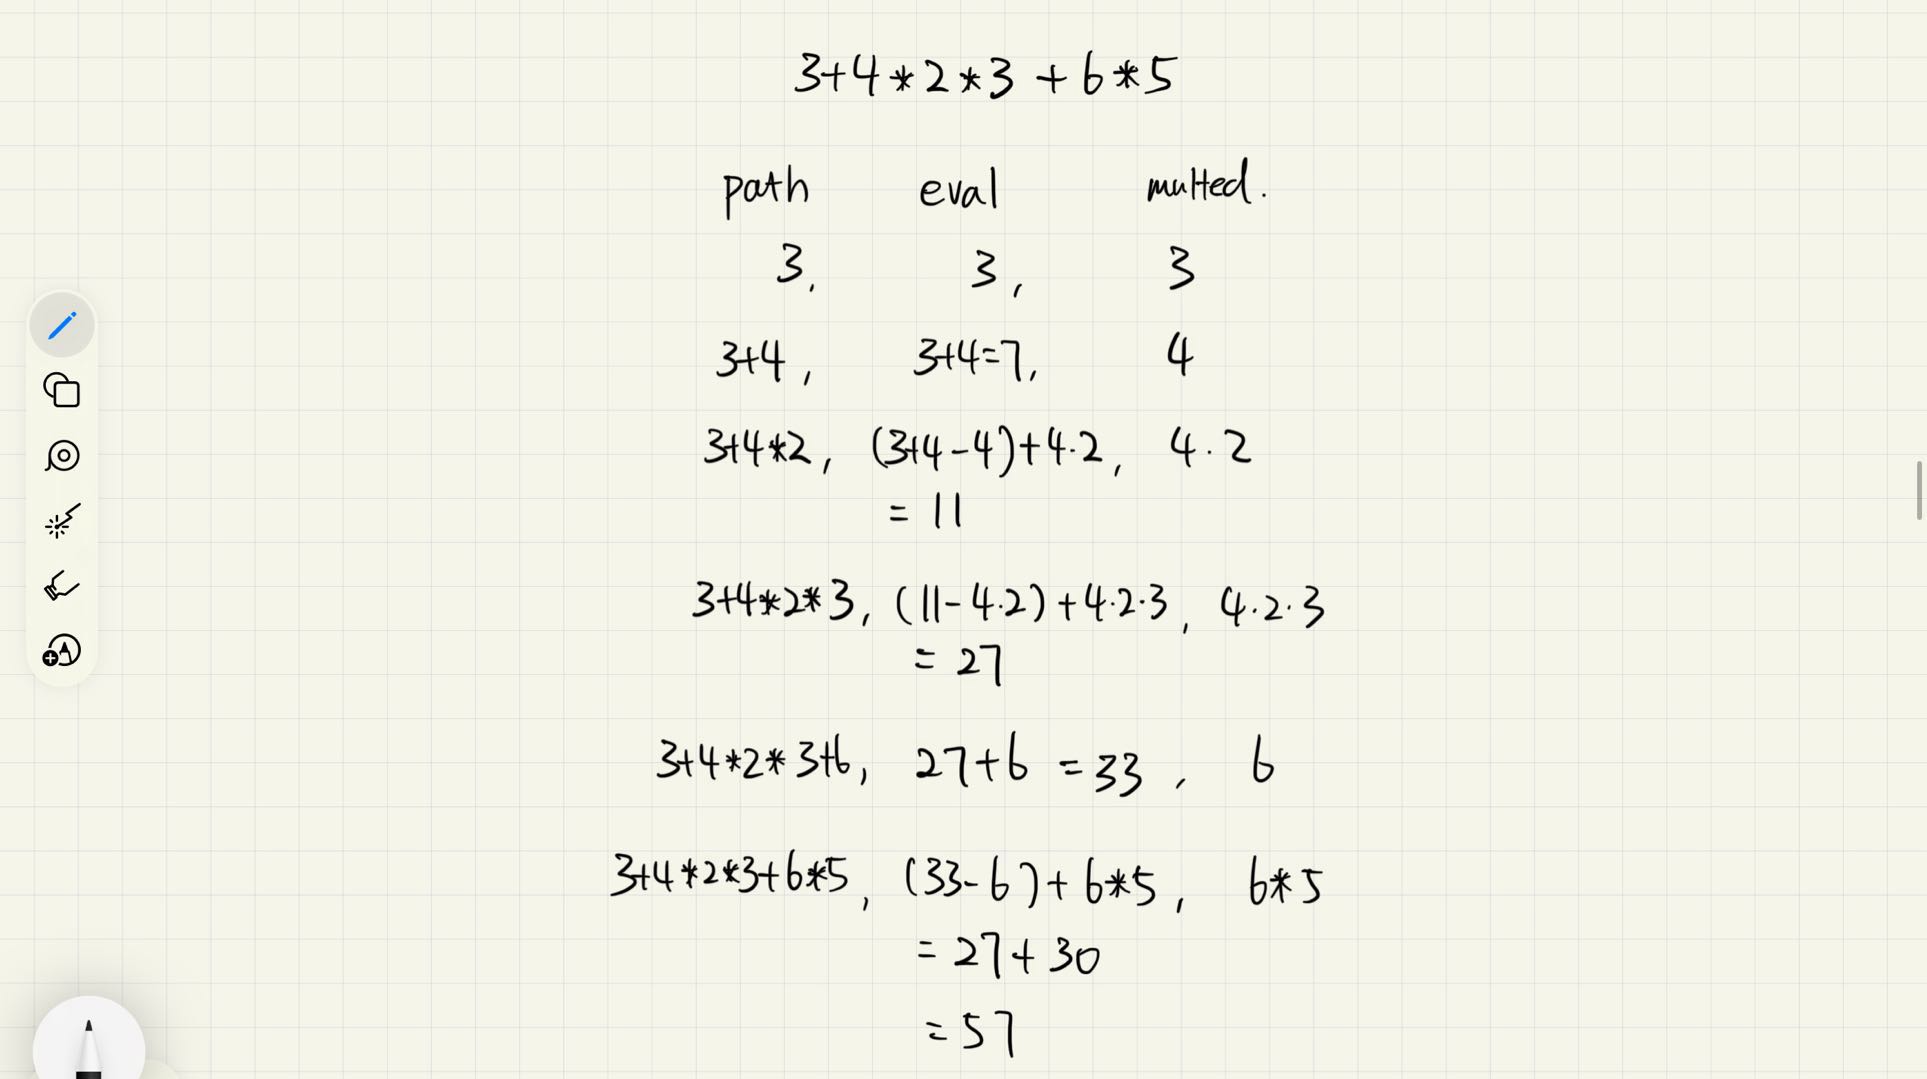 3+4*2*3+6*5
path eval multed.
3, 3, 3
3+4, 3+4=7, 4
3+4*2, (3+4-4)+4·2, 4·2
= 11
3+4*2*3, (11-4·2)+4·2·3, 4·2·3
= 27
3+4*2*3+6, 27+6 =33, 6
3+4*2*3+6*5, (33-6)+6*5, 6*5
= 27+30
= 57